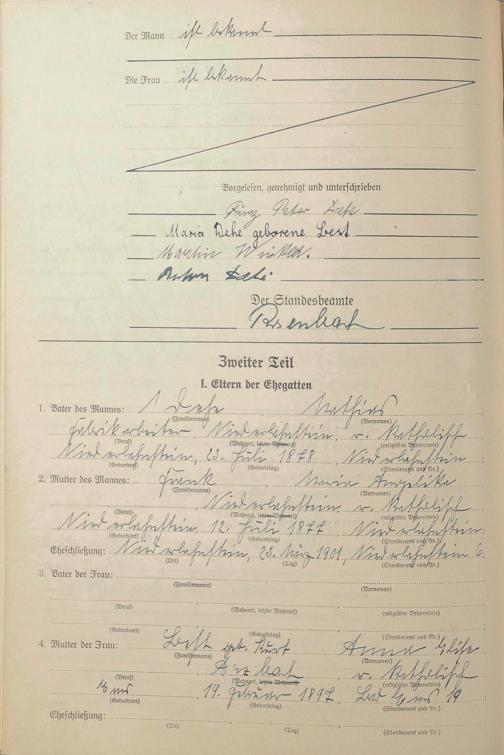 Der Mann ist bekannt
Die Frau ist bekannt
Vorgelesen, genehmigt und unterschrieben
Peter Dehe
Maria Dehe geborene Best
Martin Winkler.
Anton
Der Standesbeamte
Zweiter Teil
I. Eltern der Ehegatten
1. Vater des Mannes: Dehe Mathias
(Familienname) (Vornamen)
Fabrikarbeiter Niederlahnstein r. katholisch
(Beruf) (Wohnort, letzter Wohnort) (religiöses Bekenntnis)
Niederlahnstein, 23. Juli 1878 Niederlahnstein
(Geburtsort) (Geburtstag) (Standesamt und Nr.)
2. Mutter des Mannes: Frank Maria Angelika
(Familienname) (Vornamen)
Niederlahnstein r. katholisch
(Beruf) (Wohnort, letzter Wohnort) (religiöses Bekenntnis)
Niederlahnstein, 12. Juli 1877 Niederlahnstein
(Geburtsort) (Geburtstag) (Standesamt und Nr.)
Eheschließung: Niederlahnstein, 23. März 1901, Niederlahnstein 6.
(Ort) (Tag) (Standesamt und Nr.)
3. Vater der Frau:
(Familienname) (Vornamen)
(Beruf) (Wohnort, letzter Wohnort) (religiöses Bekenntnis)
(Geburtsort) (Geburtstag) (Standesamt und Nr.)
4. Mutter der Frau: Best geb. Kurt Anna
(Familienname) (Vornamen)
Arzbach r. katholisch
(Beruf) (Wohnort, letzter Wohnort) (religiöses Bekenntnis)
Ems 19. Februar 1897 Bad Ems 19
(Geburtsort) (Geburtstag) (Standesamt und Nr.)
Eheschließung:
(Ort) (Tag) (Standesamt und Nr.)